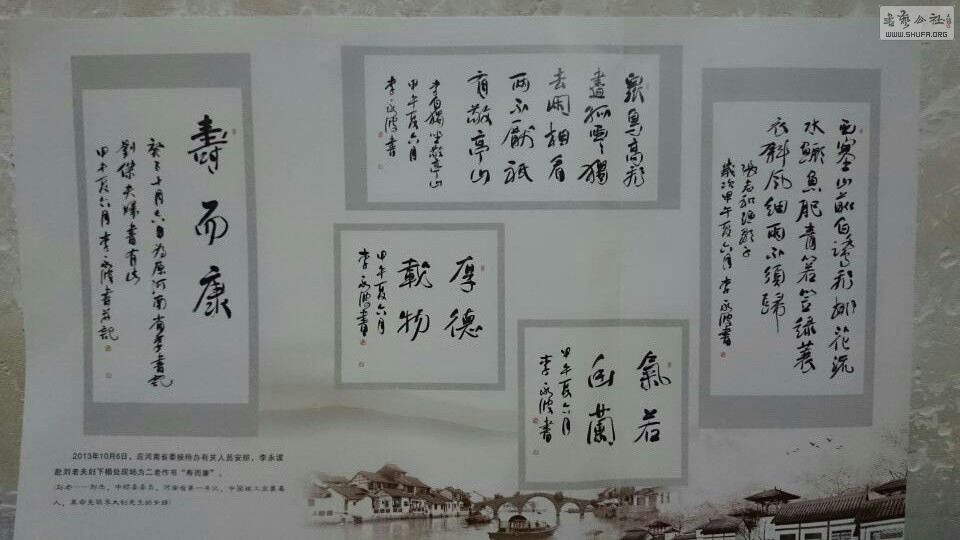 書藝公社
WWW.SHUFA.ORG
西塞山前白鷺飛桃花流
水鱖魚肥青箬笠綠蓑
衣斜風細雨不須歸
張志和漁歌子
歲次甲午夏六月 李永波書
眾鳥高飛
盡孤雲獨
去閑相看
兩不厭祇
有敬亭山
李白獨坐敬亭山
甲午夏六月
李永波書
壽而康
癸巳十月六日為原河南省李書記
劉傑夫婦書有此
甲午夏六月李永波書并記
厚德
載物
甲午夏六月
李永波書
氣若
幽蘭
甲午夏六月
李永波書
2013年10月6日，应河南省委接待办有关人员安排，李永波
赴刘老夫妇下榻处现场为二老作书“寿而康”。